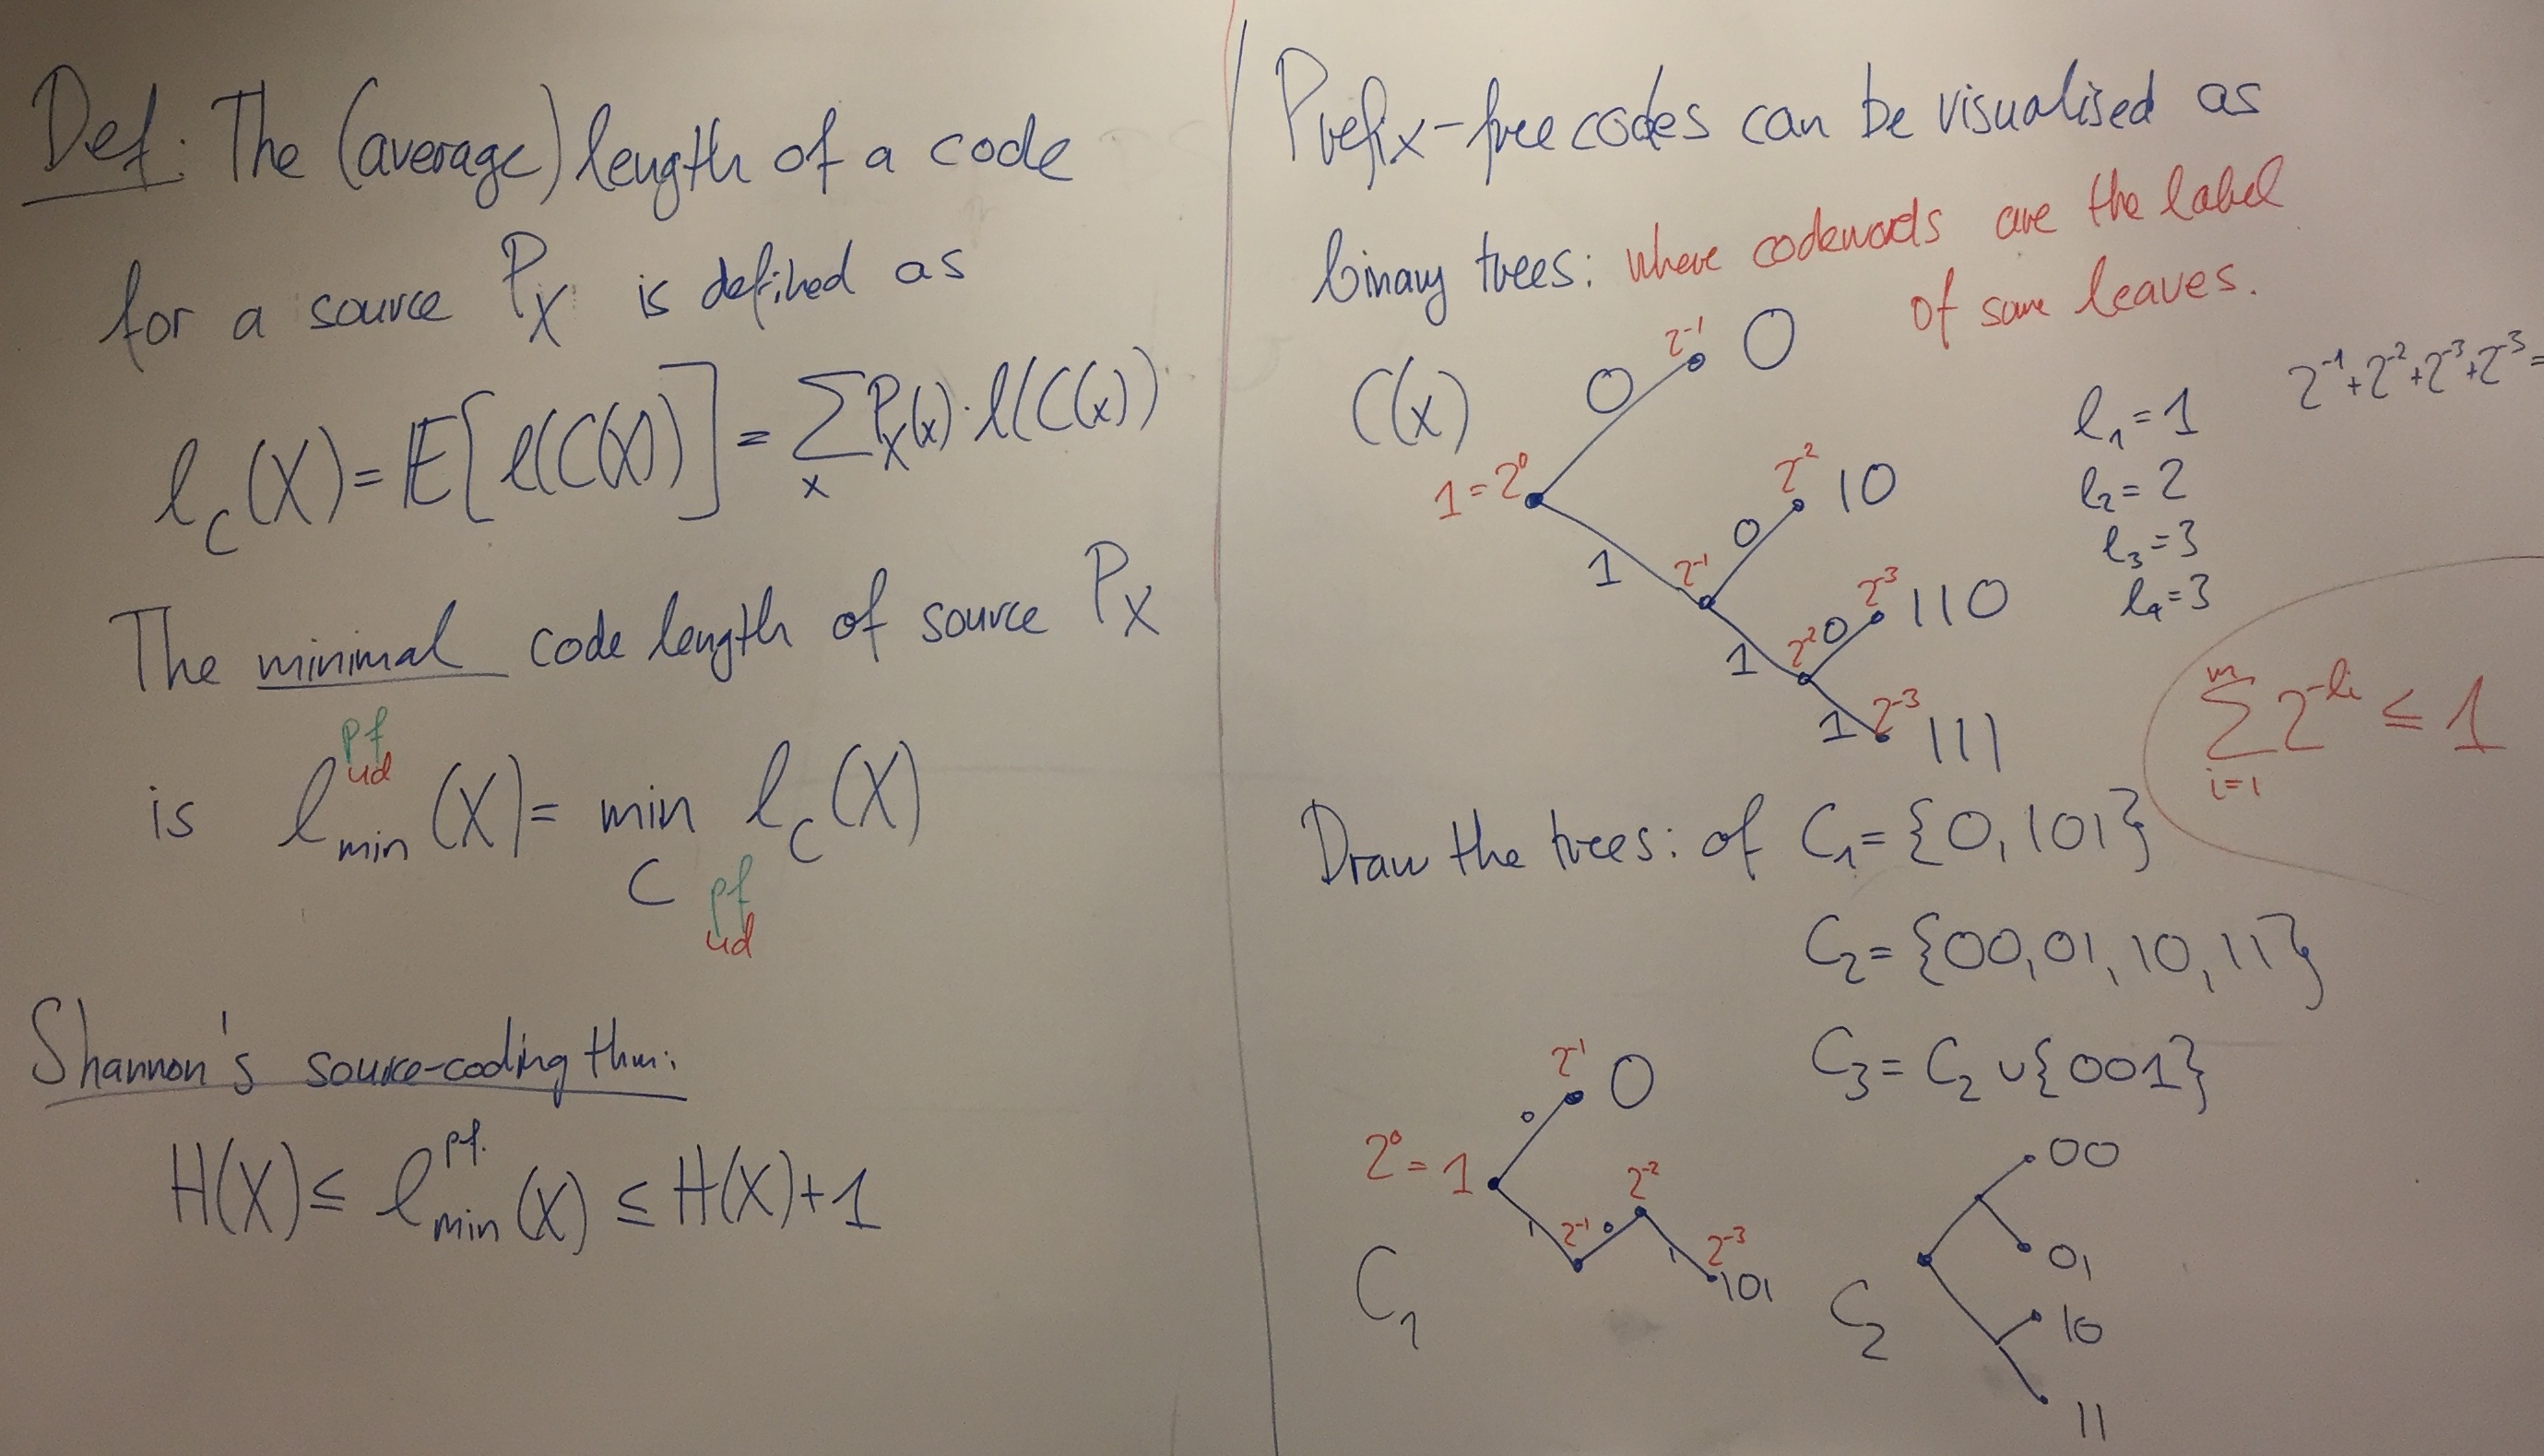 Def: The (average) length of a code
for a source P_X is defined as
ℓ_C(X) = E[ℓ(C(X))] = Σ_x P_X(x)·ℓ(C(x))
The minimal code length of source P_X
is ℓ_min^pf ud (X) = min_C pf ud ℓ_C(X)
Shannon's source-coding thm:
H(X) ≤ ℓ_min^pf. (X) ≤ H(X)+1
Prefix-free codes can be visualised as
binary trees: where codewords are the label
of some leaves.
C(x)
1 = 2^0
0
2^-1
0
1
2^-1
0
2^-2
10
1
2^-2
0
2^-3
110
1
2^-3
111
ℓ_1 = 1
ℓ_2 = 2
ℓ_3 = 3
ℓ_4 = 3
2^-1 + 2^-2 + 2^-3 + 2^-3 =
Σ_{i=1}^m 2^-ℓi ≤ 1
Draw the trees: of C_1 = {0, 101}
C_2 = {00, 01, 10, 11}
C_3 = C_2 ∪ {001}
2^0 = 1
0
2^-1
0
1
2^-1
0
2^-2
1
2^-3
101
C_1
C_2
00
01
10
11